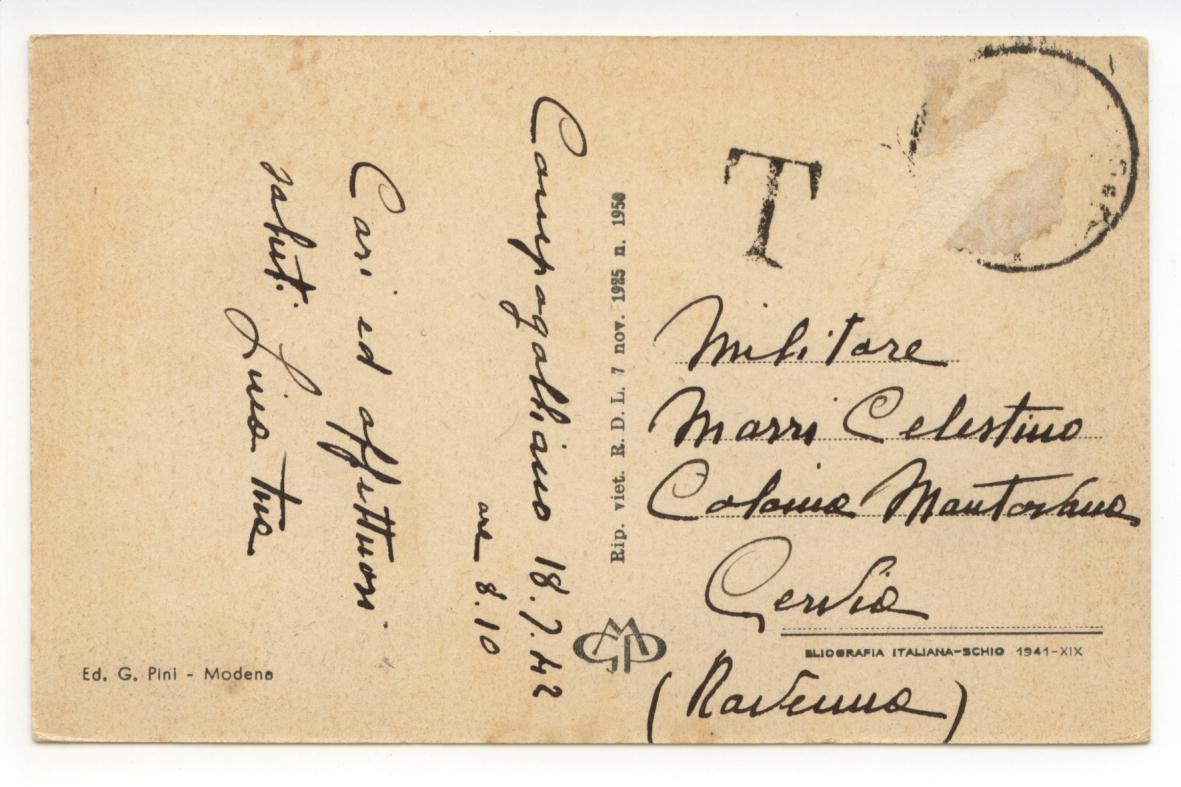 Campogalliano 18.7.42
ore 8.10
Cari ed affettuosi
saluti. Lina tua
Rip. viet. R. D. L. 7 nov. 1925 n. 1950
T
Militare
Marri Celestino
Colonia Mantovana
Cervia
(Ravenna)
ELIOGRAFIA ITALIANA-SCHIO 1941-XIX
GMP
Ed. G. Pini - Modena